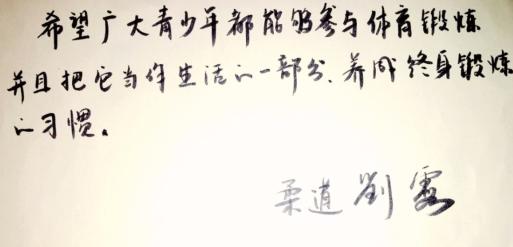 希望广大青少年都能够参与体育锻炼
并且把它当作生活的一部分、养成终身锻炼
的习惯。
柔道 刘霞